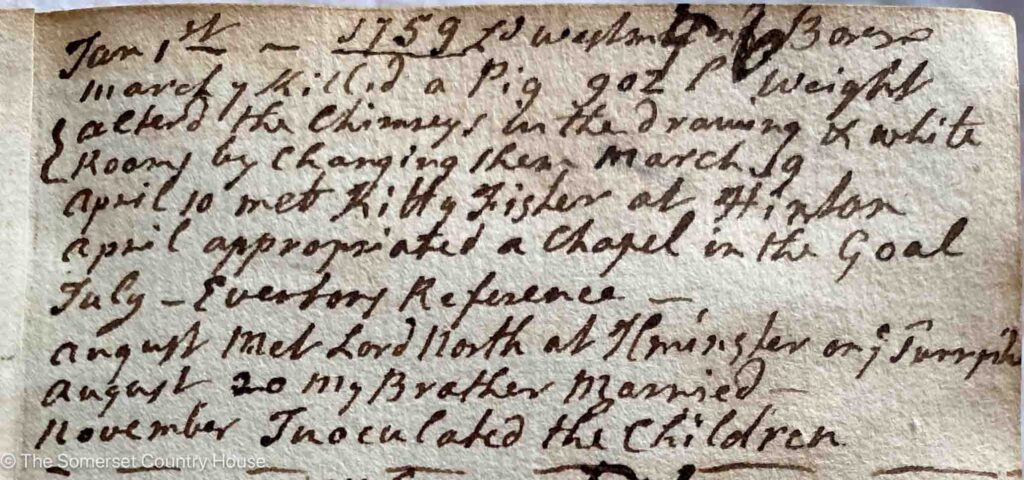 Jan 1st - 1759 Ld Westm Born
march 7 Killid a Pig 902 l weight
alterd the Chimneys in the drawing & white
Rooms by Changing them March 19
april 10 met Kitty Fisher at Hinton
april appropriated a Chapel in the Goal
July - Evertons Reference -
august Met Lord North at Ilminster on ye Turnpike
august 20 My Brother Married -
November Inoculated the Children
© The Somerset Country House